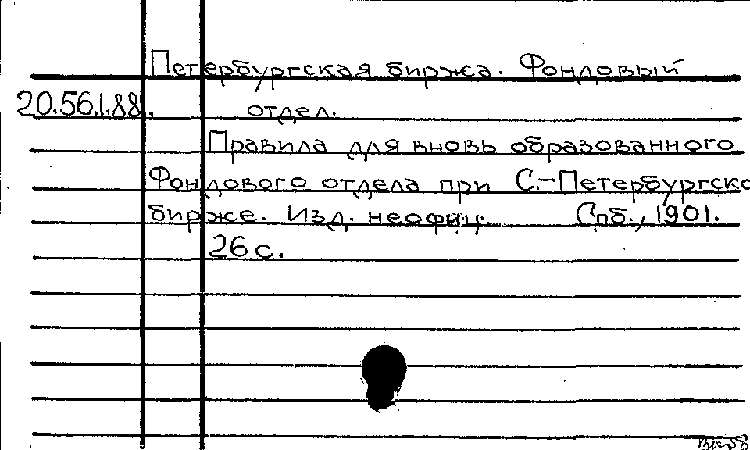 Петербургская биржа. Фондовый
20.56.1.88.
отдел.
Правила для вновь образованного
Фондового отдела при С.-Петербургско
бирже. Изд. неофиц. Спб., 1901.
26 с.